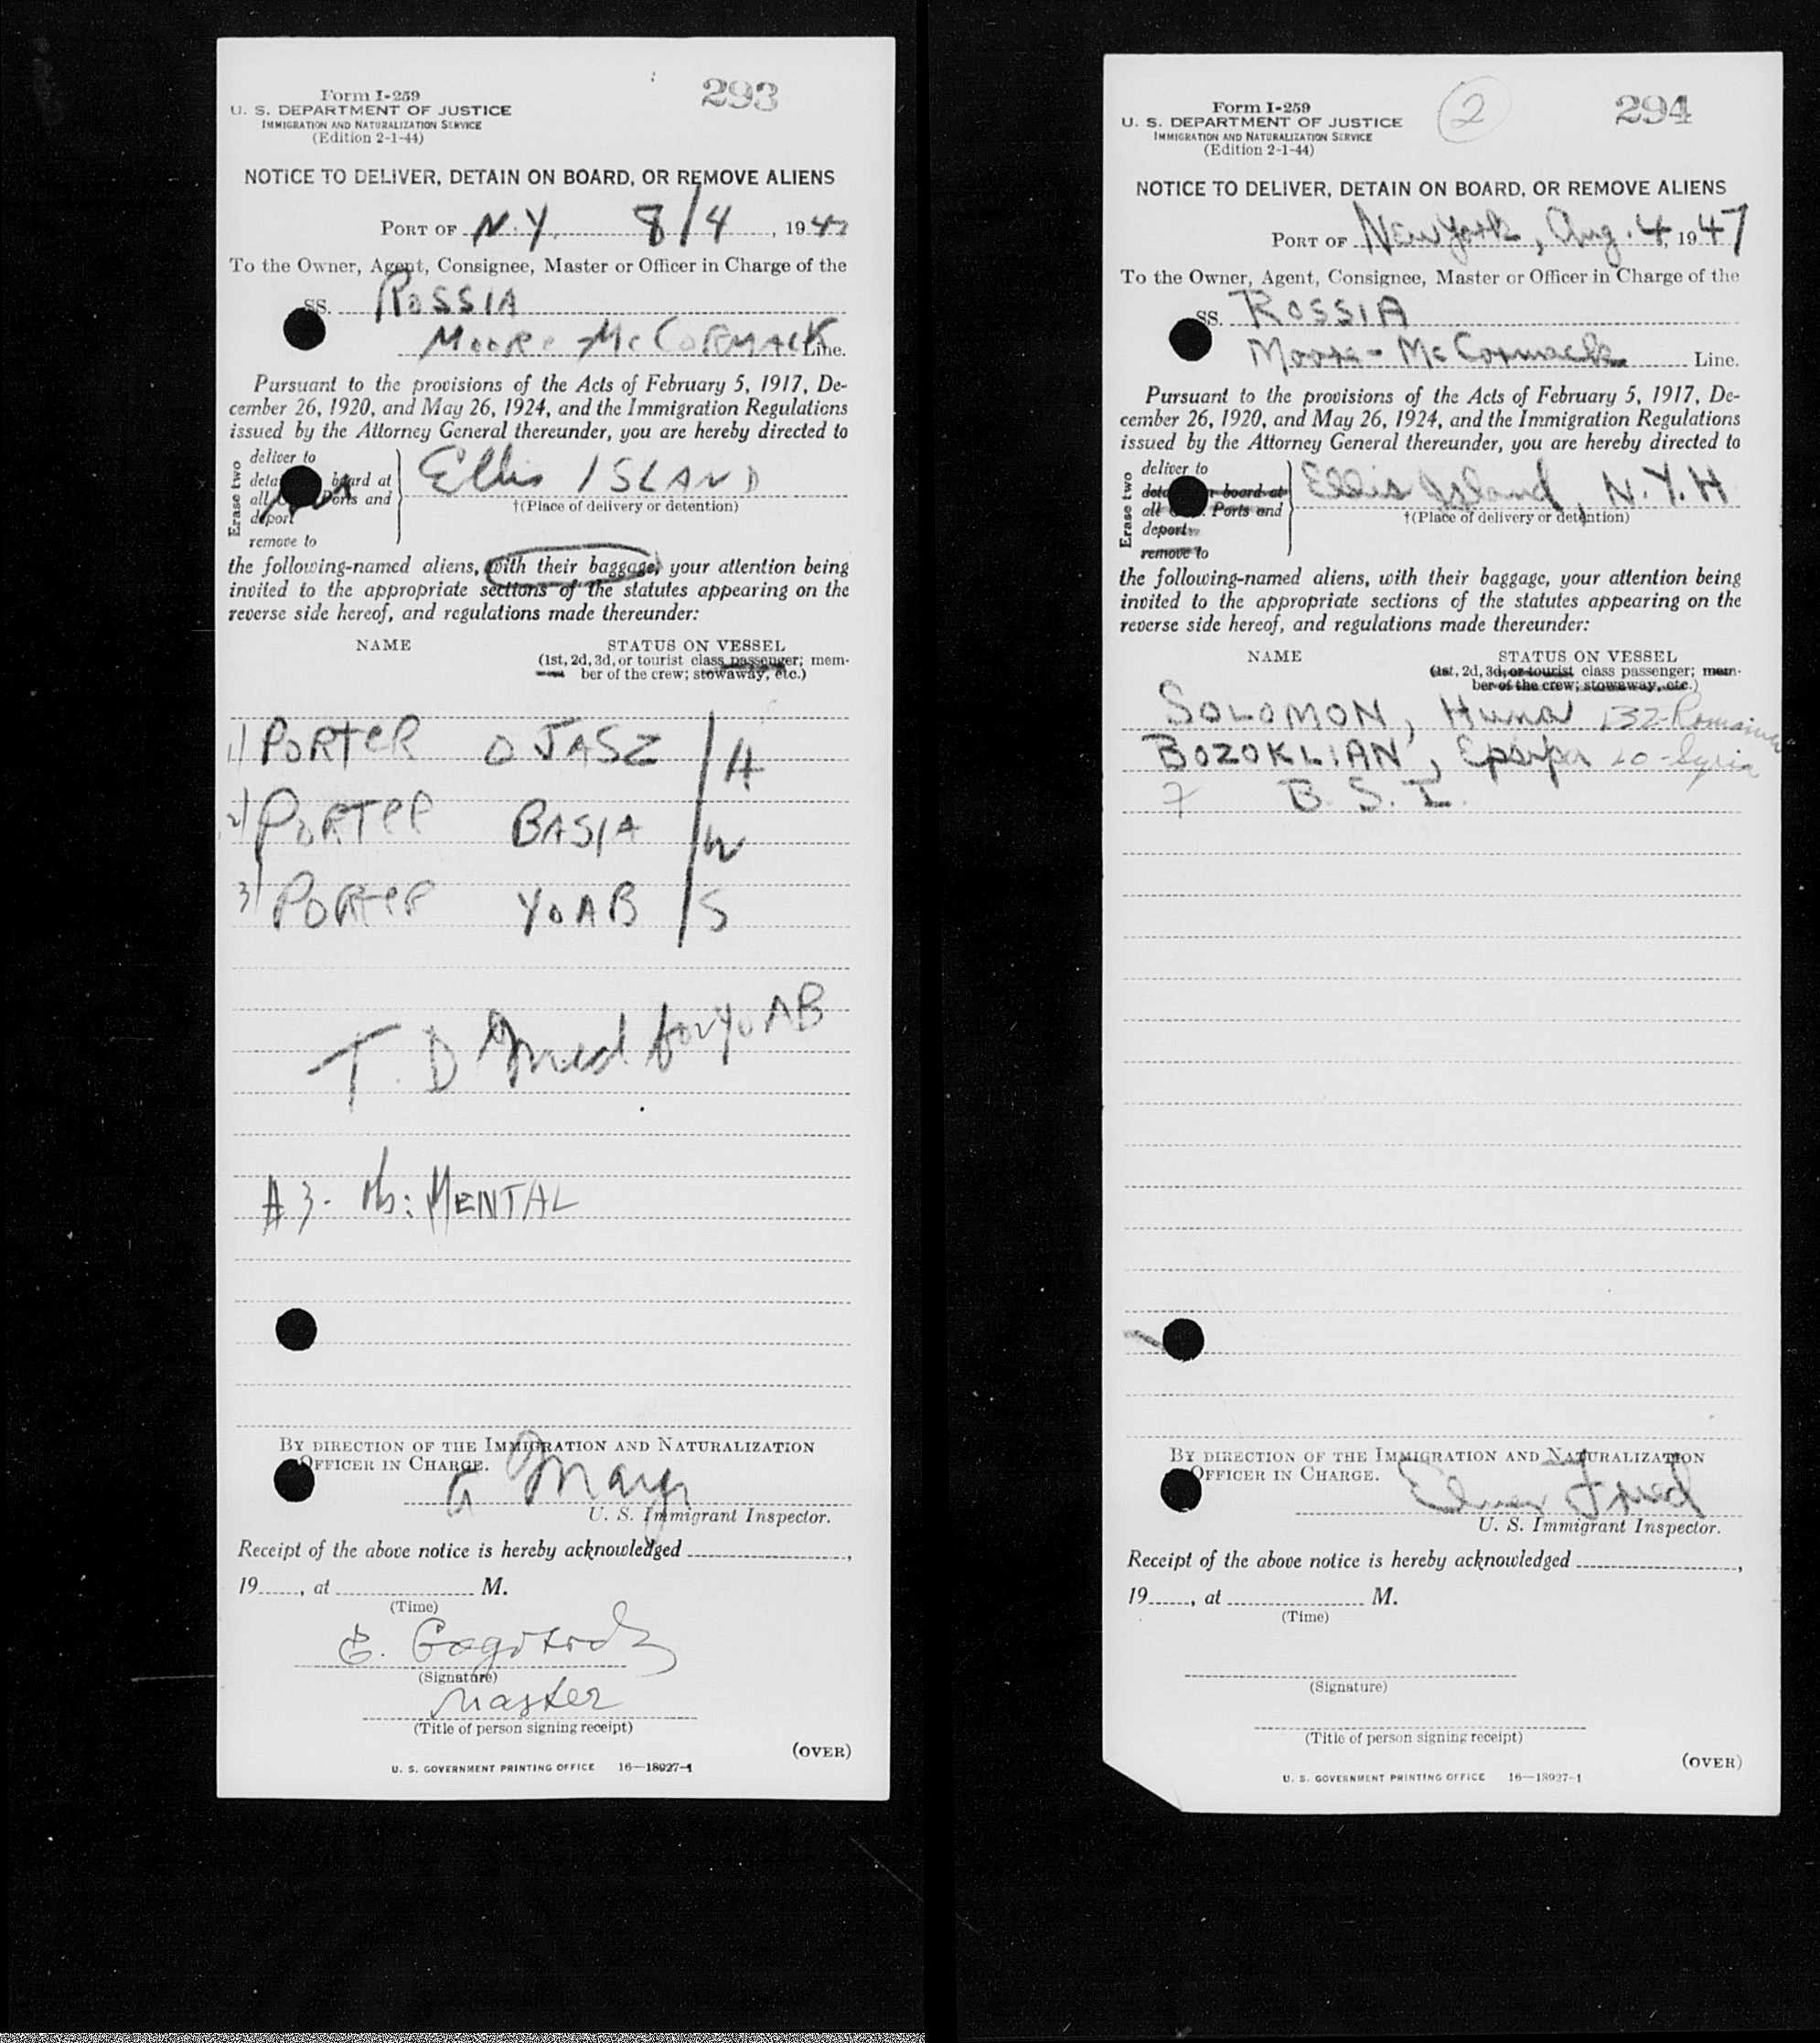 293
Form I-259
U. S. DEPARTMENT OF JUSTICE
IMMIGRATION AND NATURALIZATION SERVICE
(Edition 2-1-44)
NOTICE TO DELIVER, DETAIN ON BOARD, OR REMOVE ALIENS
PORT OF N.Y. 8/4, 1947
To the Owner, Agent, Consignee, Master or Officer in Charge of the
SS. ROSSIA
MOORE-McCORMACK Line.
Pursuant to the provisions of the Acts of February 5, 1917, De-
cember 26, 1920, and May 26, 1924, and the Immigration Regulations
issued by the Attorney General thereunder, you are hereby directed to
Erase two
deliver to
board at
all Ports and
deport
remove to
Ellis ISLAND
†(Place of delivery or detention)
the following-named aliens, with their baggage, your attention being
invited to the appropriate sections of the statutes appearing on the
reverse side hereof, and regulations made thereunder:
NAME STATUS ON VESSEL
(1st, 2d, 3d, or tourist class passenger; mem-
ber of the crew; stowaway, etc.)
1) PORTER OJASZ / H
2) PORTER BASIA / W
3) PORTER YOAB / S
T. D Med for YOAB
#3- Ob: MENTAL
BY DIRECTION OF THE IMMIGRATION AND NATURALIZATION
OFFICER IN CHARGE.
U. S. Immigrant Inspector.
Receipt of the above notice is hereby acknowledged ,
19 , at M.
(Time)
(Signature)
Master
(Title of person signing receipt)
(OVER)
U. S. GOVERNMENT PRINTING OFFICE 16—18927-1
294
2
Form I-259
U. S. DEPARTMENT OF JUSTICE
IMMIGRATION AND NATURALIZATION SERVICE
(Edition 2-1-44)
NOTICE TO DELIVER, DETAIN ON BOARD, OR REMOVE ALIENS
PORT OF New York, Aug. 4, 1947
To the Owner, Agent, Consignee, Master or Officer in Charge of the
SS. ROSSIA
Moore-McCormack Line.
Pursuant to the provisions of the Acts of February 5, 1917, De-
cember 26, 1920, and May 26, 1924, and the Immigration Regulations
issued by the Attorney General thereunder, you are hereby directed to
Erase two
deliver to
board at
all Ports and
deport
remove to
Ellis Island, N.Y.H
†(Place of delivery or detention)
the following-named aliens, with their baggage, your attention being
invited to the appropriate sections of the statutes appearing on the
reverse side hereof, and regulations made thereunder:
NAME STATUS ON VESSEL
(1st, 2d, 3d, or tourist class passenger; mem-
ber of the crew; stowaway, etc.)
SOLOMON, Huna
BOZOKLIAN, 20-Syria
7 B. S. I.
BY DIRECTION OF THE IMMIGRATION AND NATURALIZATION
OFFICER IN CHARGE.
U. S. Immigrant Inspector.
Receipt of the above notice is hereby acknowledged ,
19 , at M.
(Time)
(Signature)
(Title of person signing receipt)
(OVER)
U. S. GOVERNMENT PRINTING OFFICE 16—18927-1